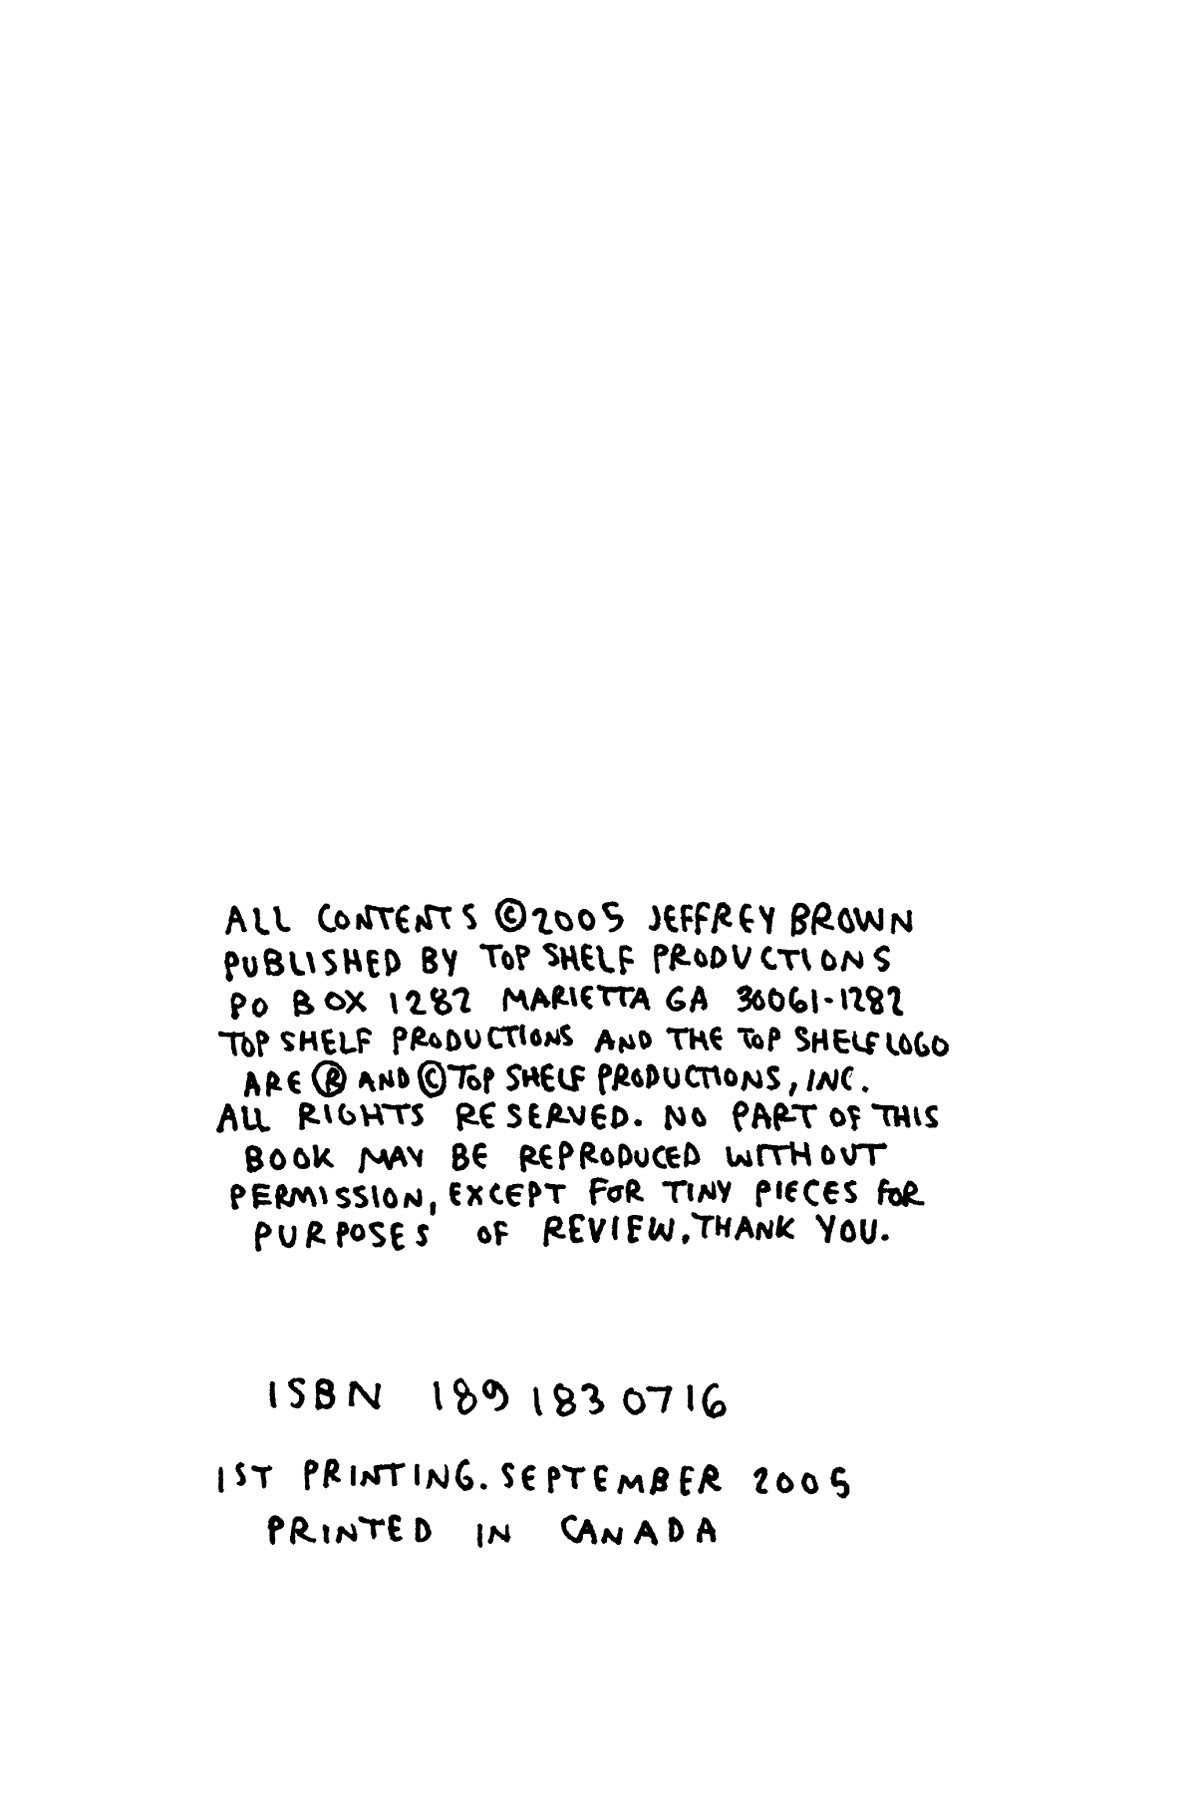 ALL CONTENTS ©2005 JEFFREY BROWN
PUBLISHED BY TOP SHELF PRODUCTIONS
PO BOX 1282 MARIETTA GA 30061-1282
TOP SHELF PRODUCTIONS AND THE TOP SHELF LOGO
ARE ® AND © TOP SHELF PRODUCTIONS, INC.
ALL RIGHTS RESERVED. NO PART OF THIS
BOOK MAY BE REPRODUCED WITHOUT
PERMISSION, EXCEPT FOR TINY PIECES FOR
PURPOSES OF REVIEW. THANK YOU.
ISBN 189 183 0716
1ST PRINTING. SEPTEMBER 2005
PRINTED IN CANADA